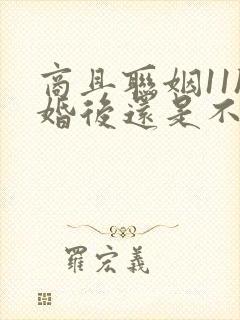 商且聯姻11
婚後還是不
羅宏義